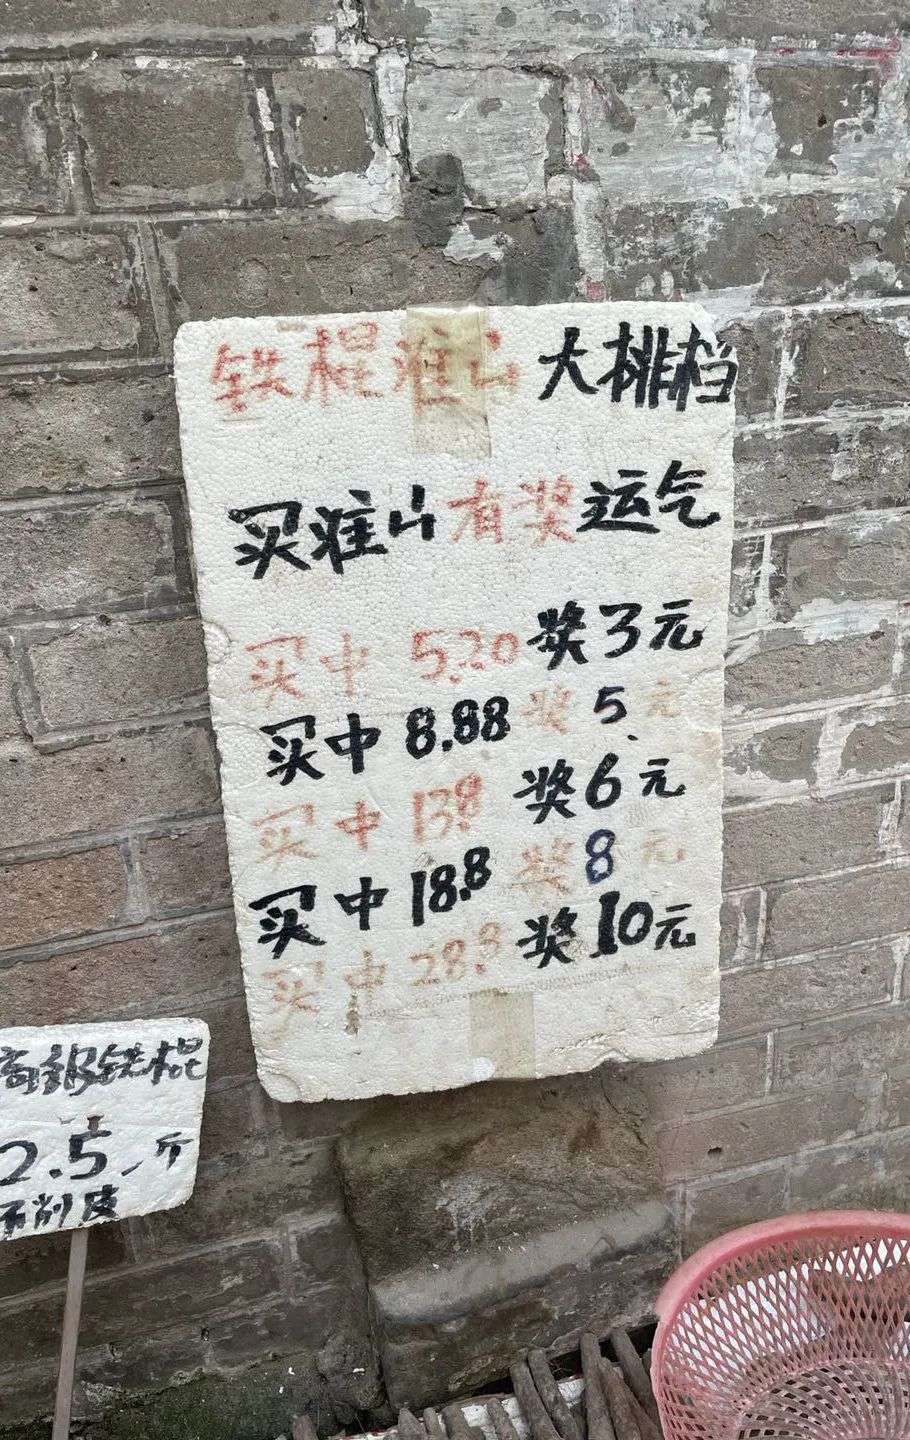 铁棍淮山大排档
买淮山有奖运气
买中 5.20 奖3元
买中 8.88 奖5元
买中 13.8 奖6元
买中 18.8 奖8元
买中 28.8 奖10元
铁棍
2.5 一斤
不削皮